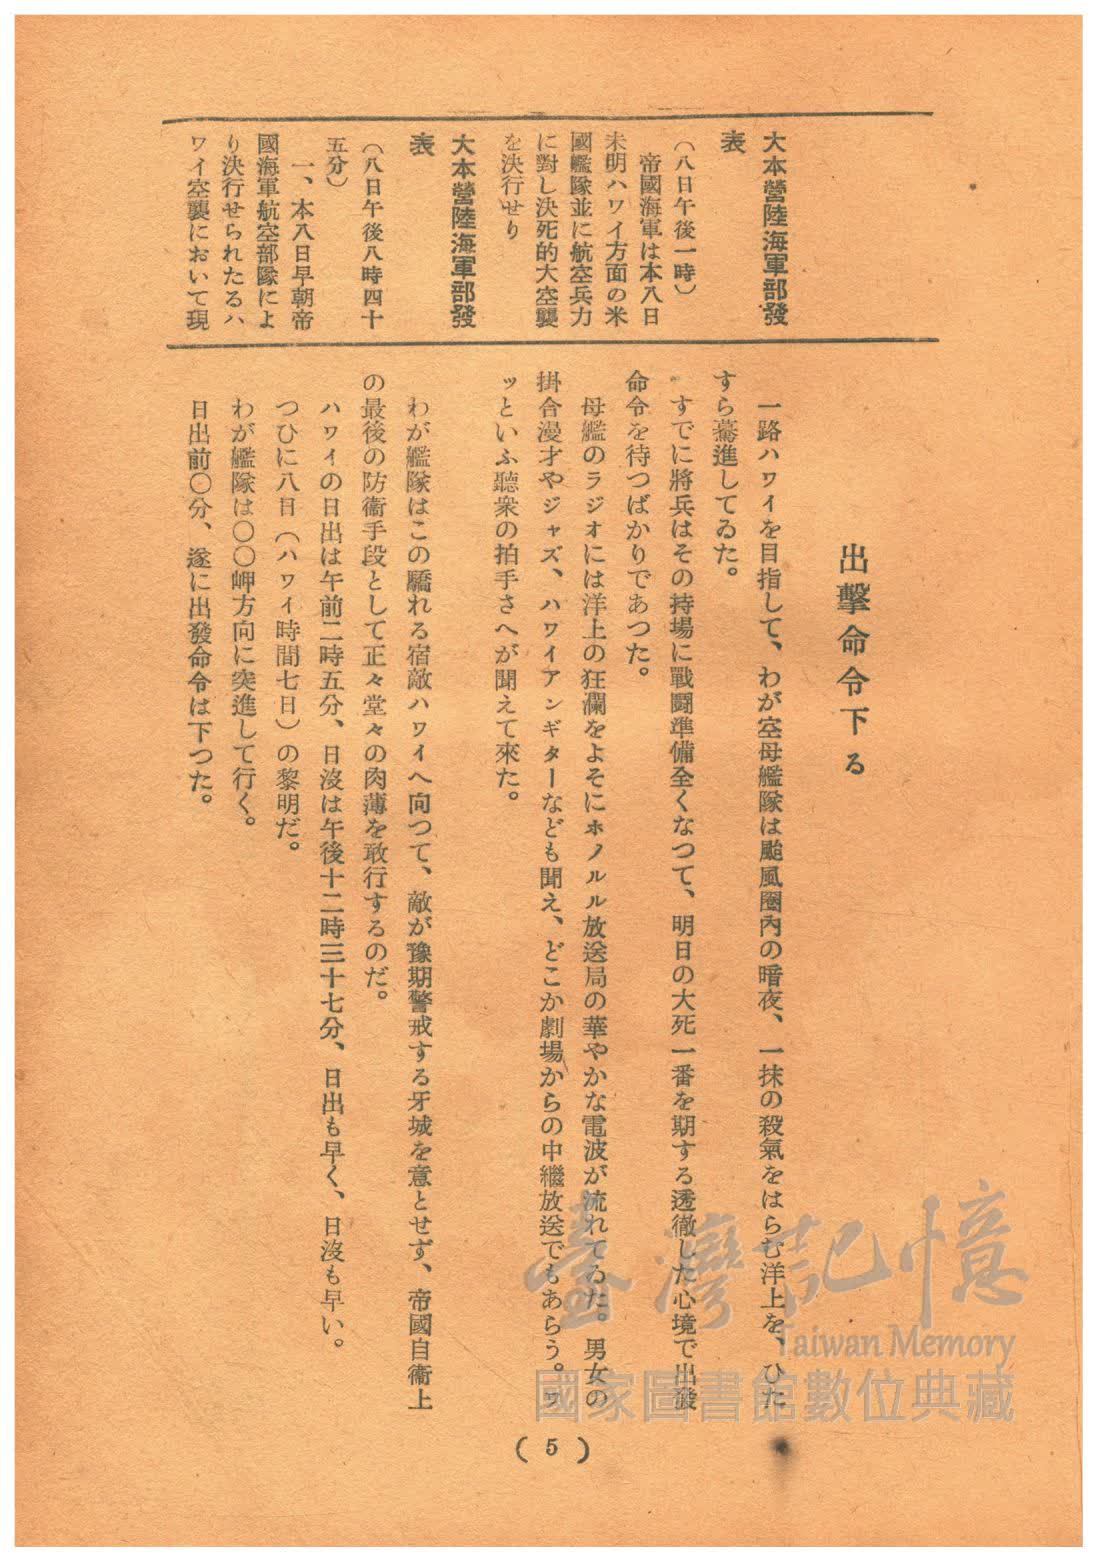 大本營陸海軍部發
表
(八日午後一時)
帝國海軍は本八日
未明ハワイ方面の米
國艦隊並に航空兵力
に對し決死的大空襲
を決行せり
大本營陸海軍部發
表
(八日午後八時四十
五分)
一、本八日早朝帝
國海軍航空部隊によ
り決行せられたるハ
ワイ空襲において現
出擊命令下る
一路ハワイを目指して、わが空母艦隊は颱風圏內の暗夜、一抹の殺氣をはらむ洋上を、ひた
すら驀進してゐた。
すでに將兵はその持場に戰鬪準備全くなつて、明日の大死一番を期する透徹した心境で出發
命令を待つばかりであつた。
母艦のラジオには洋上の狂瀾をよそにホノルル放送局の華やかな電波が流れてゐた。男女の
掛合漫才やジャズ、ハワイアンギターなども聞え、どこか劇場からの中繼放送でもあらう。ワ
ッといふ聽衆の拍手さへが聞えて來た。
わが艦隊はこの驕れる宿敵ハワイへ向つて、敵が豫期警戒する牙城を意とせず、帝國自衞上
の最後の防衞手段として正々堂々の肉薄を敢行するのだ。
ハワイの日出は午前二時五分、日沒は午後十二時三十七分、日出も早く、日沒も早い。
つひに八日(ハワイ時間七日)の黎明だ。
わが艦隊は〇〇岬方向に突進して行く。
日出前〇分、遂に出發命令は下つた。
臺灣記憶
Taiwan Memory
國家圖書館數位典藏
( 5 )